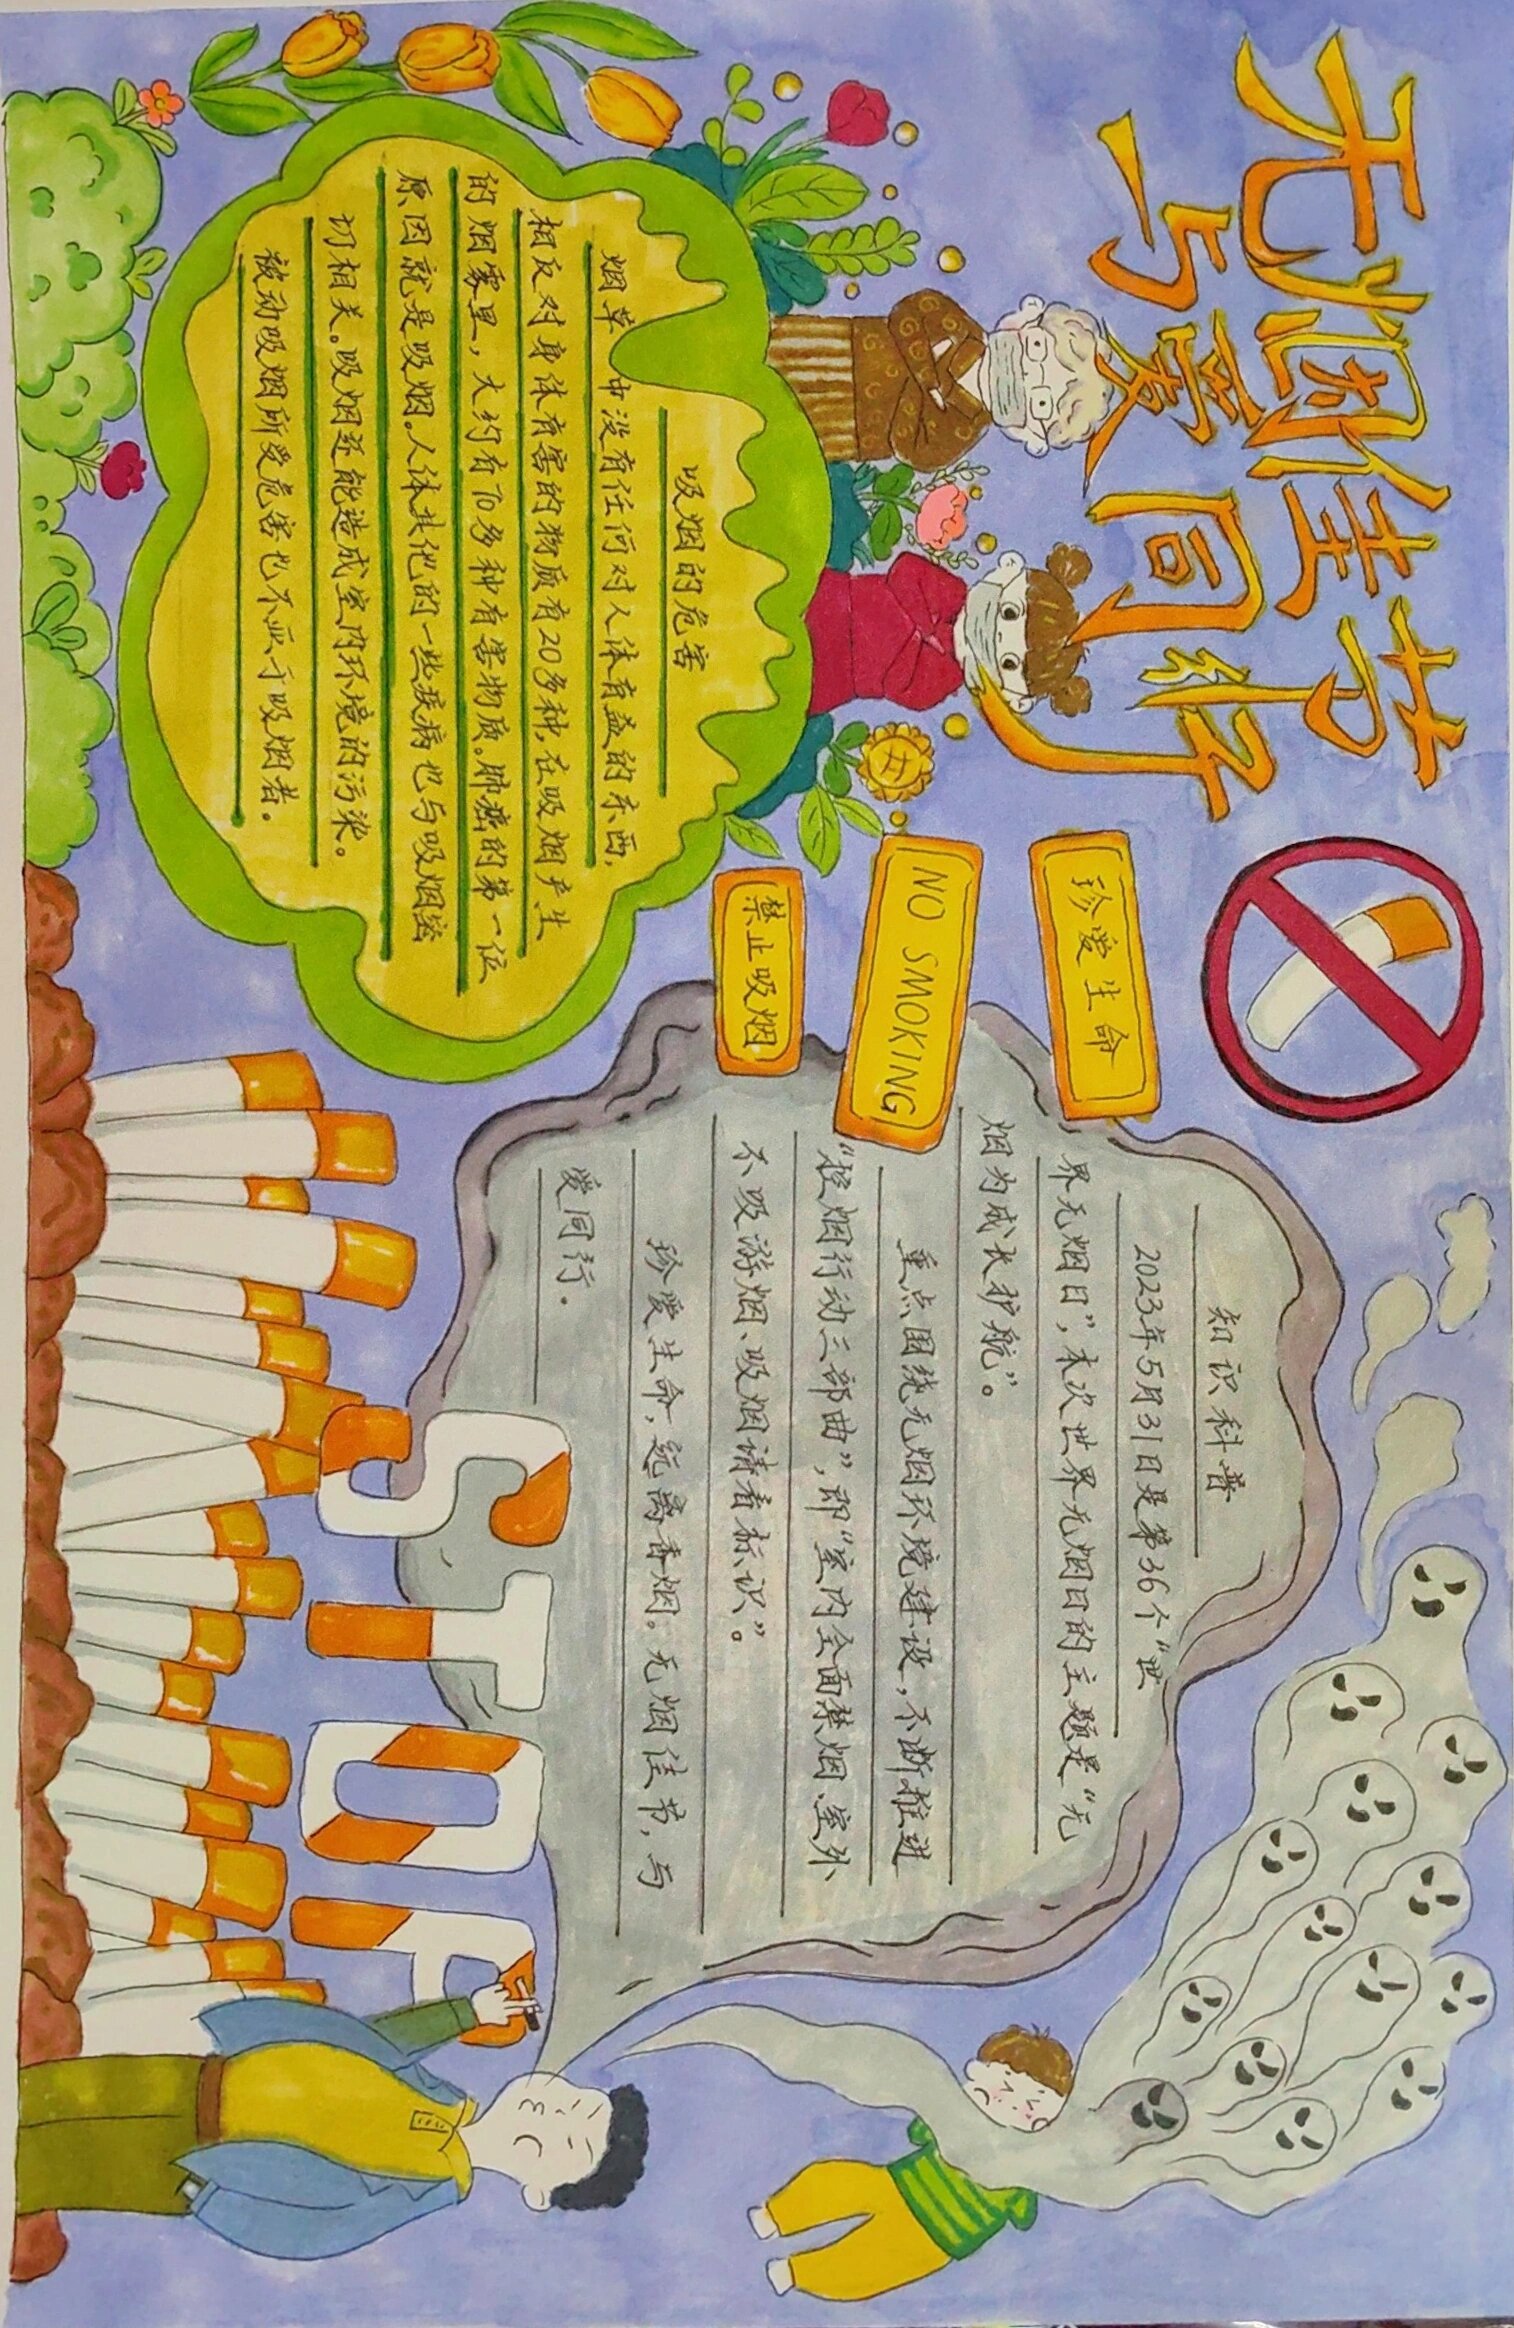 无烟佳节
与爱同行
吸烟的危害
烟草中没有任何对人体有益的东西,
相反对身体有害的物质有20多种,在吸烟产生
的烟雾里,大约有70多种有害物质。肺癌的第一位
原因就是吸烟。人体其他的一些疾病也与吸烟密
切相关。吸烟还能造成室内环境的污染。
被动吸烟所受危害也不亚于吸烟者。
珍爱生命
NO SMOKING
禁止吸烟
知识科普
2023年5月31日是第36个“世
界无烟日”,本次世界无烟日的主题是“无
烟为成长护航”。
重点围绕无烟环境建设,不断推进
“控烟行动三部曲”,即“室内全面禁烟、室外
不吸游烟、吸烟请看标识”。
珍爱生命,远离香烟。无烟佳节,与
爱同行.
STOP